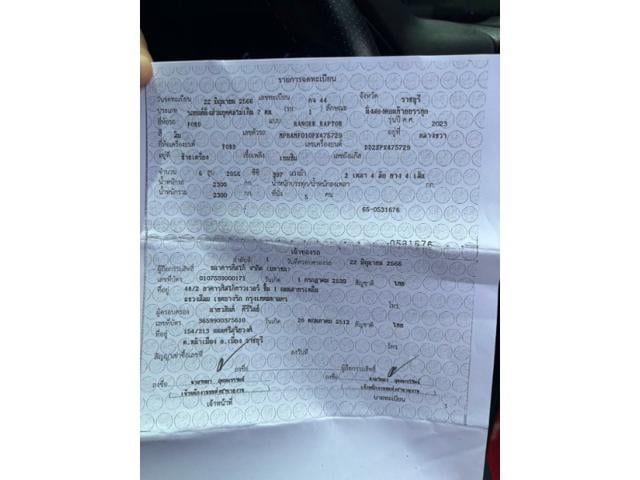 รายการจดทะเบียน
วันจดทะเบียน 22 มิถุนายน 2566 เลขทะเบียน กจ 44 จังหวัด ราชบุรี
ประเภท รถยนต์นั่งส่วนบุคคลไม่เกิน 7 คน (รย. 1) ลักษณะ นั่งสองตอนท้ายบรรทุก
ยี่ห้อรถ FORD แบบ RANGER RAPTOR รุ่นปี ค.ศ. 2023
สี ส้ม เลขตัวรถ MPBAMF010PX475729 อยู่ที่ กลางขวา
ยี่ห้อเครื่องยนต์ FORD เลขเครื่องยนต์ DD2SPX475729
อยู่ที่ ซ้ายเครื่อง เชื้อเพลิง เบนซิน เลขถังแก๊ส
จำนวน 6 สูบ 2956 ซีซี 397 แรงม้า 2 เพลา 4 ล้อ ยาง 4 เส้น
น้ำหนักรถ 2300 กก. น้ำหนักบรรทุก/น้ำหนักลงเพลา กก.
น้ำหนักรวม 2300 กก. ที่นั่ง 5 คน
65-0531676
0531676
เจ้าของรถ
ลำดับที่ 1 วันที่ครอบครองรถ 22 มิถุนายน 2566
ผู้ถือกรรมสิทธิ์ ธนาคารทิสโก้ จำกัด (มหาชน)
เลขที่บัตร 0107539000171 วันเกิด 1 กรกฎาคม 2539 สัญชาติ ไทย
ที่อยู่ 48/2 อาคารทิสโก้ทาวเวอร์ ชั้น 1 ถนนสาทรเหนือ
แขวงสีลม เขตบางรัก กรุงเทพมหานคร โทร.
ผู้ครอบครอง
เลขที่บัตร 3659900375610 วันเกิด 26 พฤษภาคม 2512 สัญชาติ ไทย
ที่อยู่ 154/313 ถนนศรีสุริยวงศ์
ต.หน้าเมือง อ.เมือง ราชบุรี โทร.
สัญญาเช่าซื้อเลขที่ ลงวันที่
ลงชื่อ ผู้ถือกรรมสิทธิ์
ลงชื่อ ลงชื่อ
เจ้าหน้าที่ นายทะเบียน